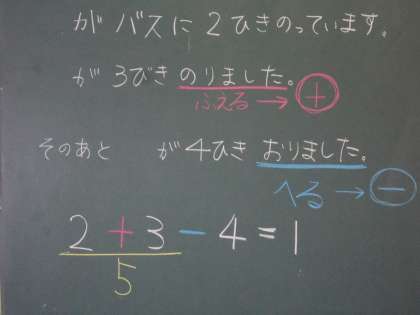 がバスに2ひきのっています。
が3びきのりました。
ふえる→+
そのあと が4ひきおりました。
へる→−
2+3−4=1
5